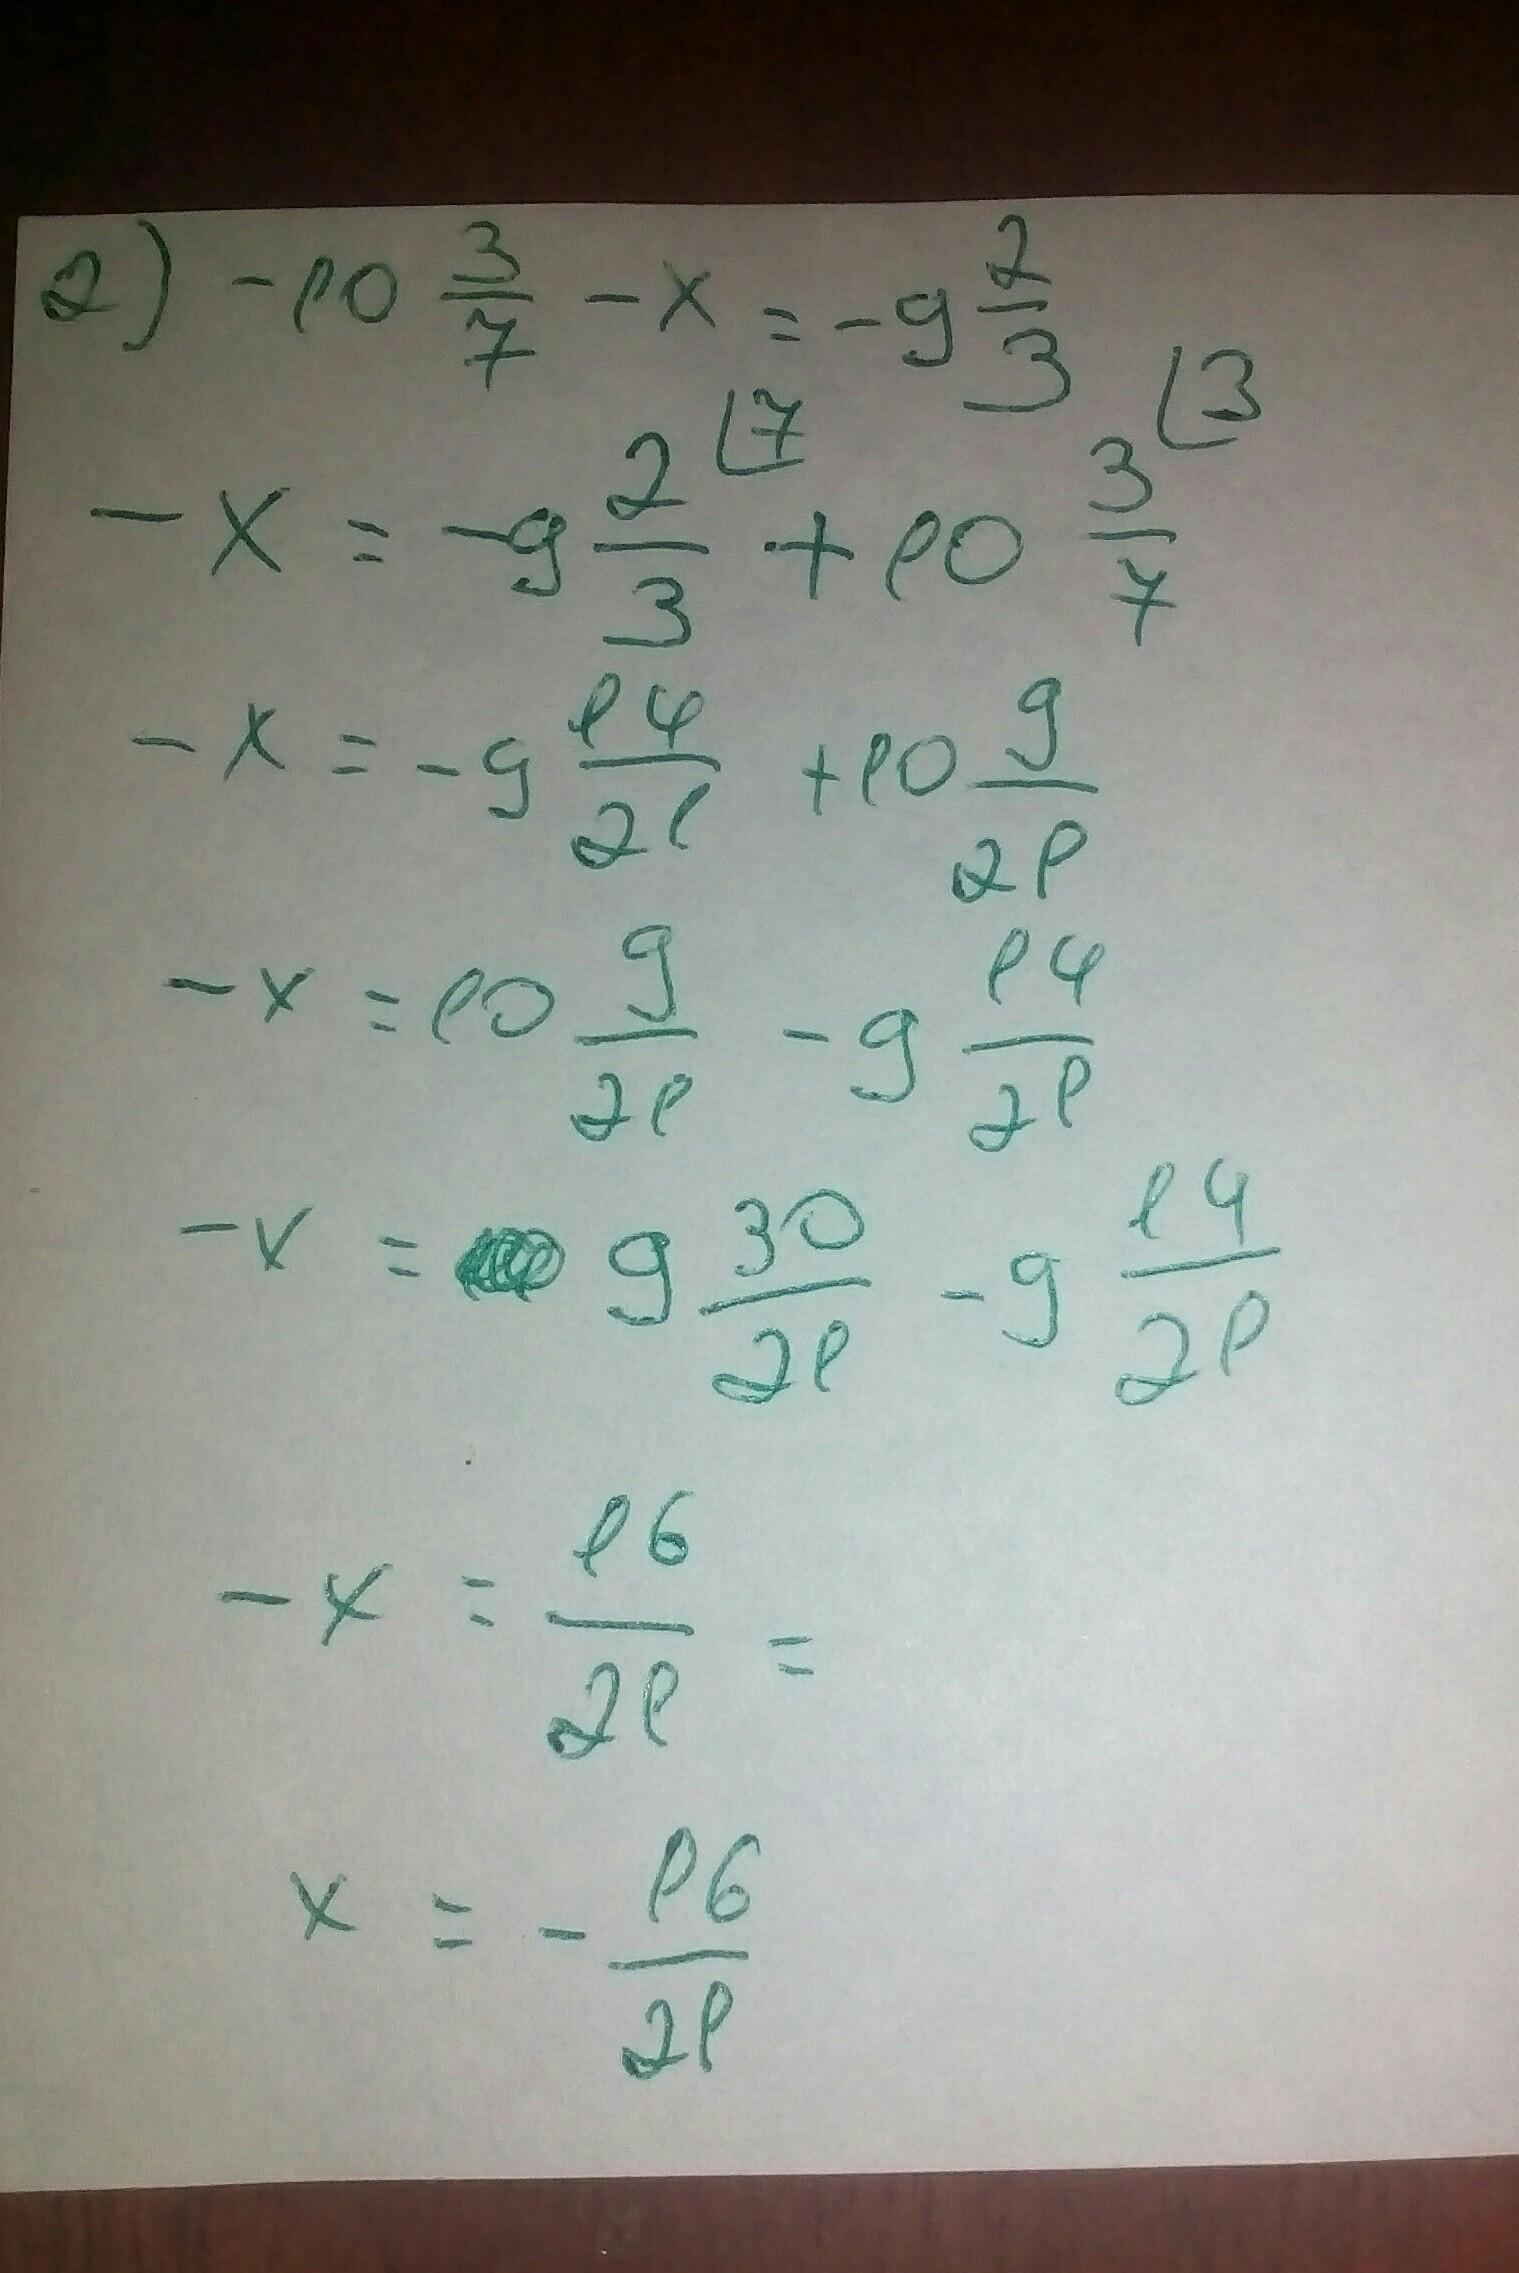 2) -10 3/7 - x = -9 2/3
-x = -9 2/3 ⌊7 + 10 3/7 ⌊3
-x = -9 14/21 + 10 9/21
-x = 10 9/21 - 9 14/21
-x = 9 30/21 - 9 14/21
-x = 16/21 =
x = - 16/21